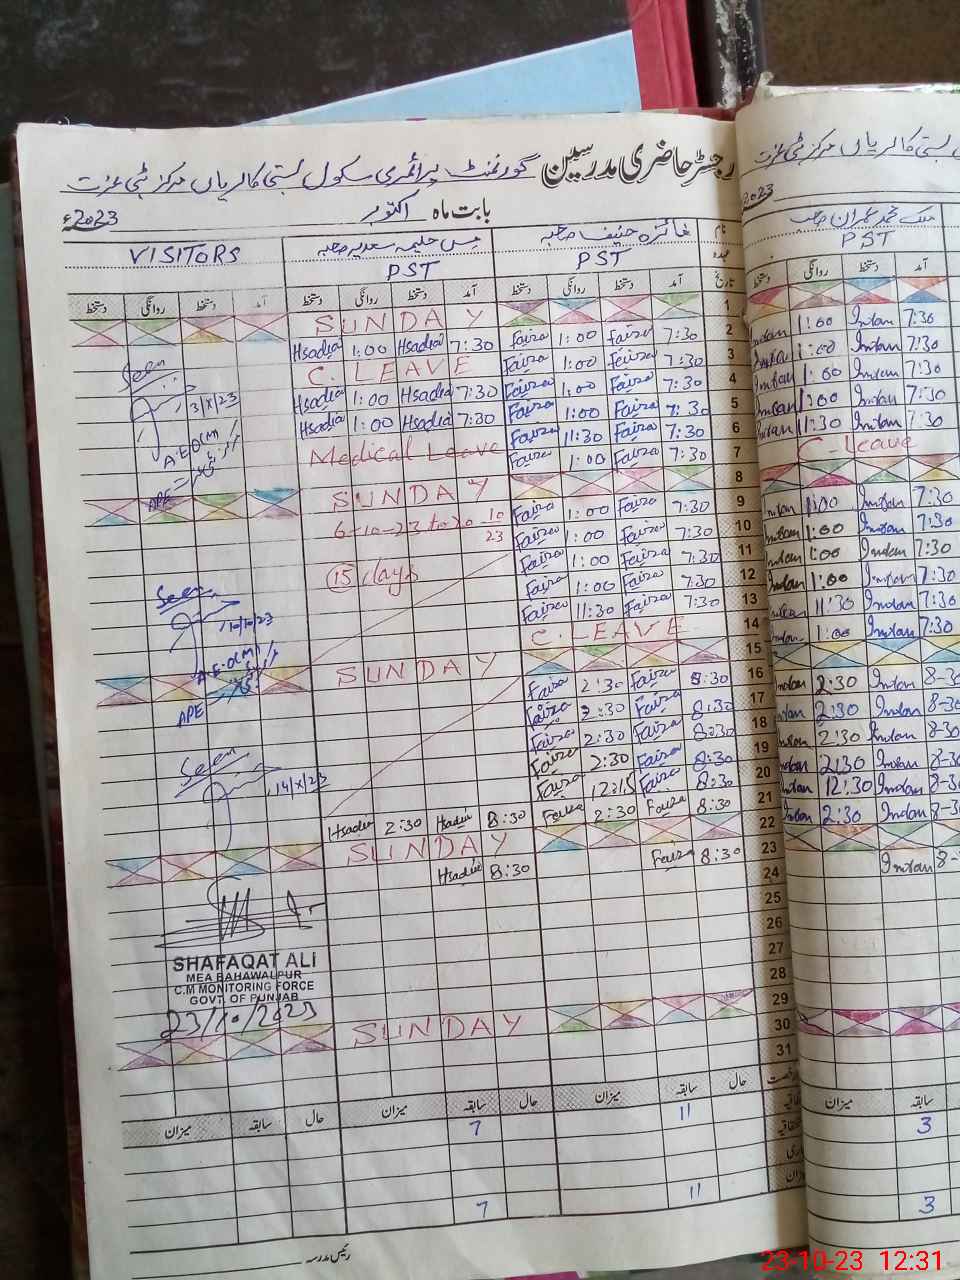 رجسٹر حاضری مدرسین گورنمنٹ پرائمری سکول بستی کالریاں مرکز ٹبی عزت
بابت ماہ اکتوبر 2023ء
نام فائزہ حنیف صاحبہ مس حلیمہ سعدیہ صاحبہ VISITORS
عہدہ PST PST
تاریخ آمد دستخط روانگی دستخط آمد دستخط روانگی دستخط آمد دستخط روانگی دستخط
1 SUNDAY
2 7:30 Faiza 1:00 Faiza 7:30 Hsadia 1:00 Hsadia
3 7:30 Faiza 1:00 Faiza C. LEAVE
4 7:30 Faiza 1:00 Faiza 7:30 Hsadia 1:00 Hsadia
5 7:30 Faiza 1:00 Faiza 7:30 Hsadia 1:00 Hsadia
6 7:30 Faiza 11:30 Faiza Medical Leave
7 7:30 Faiza 1:00 Faiza
8 SUNDAY
9 7:30 Faiza 1:00 Faiza 6-10-23 to 20 10/23
10 7:30 Faiza 1:00 Faiza
11 7:30 Faiza 1:00 Faiza 15 days
12 7:30 Faiza 1:00 Faiza
13 7:30 Faiza 11:30 Faiza
14 C. LEAVE
15 SUNDAY
16 8:30 Faiza 2:30 Faiza
17 8:30 Faiza 2:30 Faiza
18 8:30 Faiza 2:30 Faiza
19 8:30 Faiza 2:30 Faiza
20 8:30 Faiza 12:15 Faiza
21 8:30 Faiza 2:30 Faiza 8:30 Hsadia 2:30 Hsadia
22 SUNDAY
23 8:30 Faiza 8:30 Hsadia
24
25
26
27
28
29 SUNDAY
30
31
حال سابقہ میزان حال سابقہ میزان حال سابقہ میزان
11 7
11 7
رئیس مدرسہ
Seen
3/X/23
A.EO(M)
APE
Seen
10/10/23
A.EO(M)
APE
Seen
14/X/23
SHAFAQAT ALI
MEA BAHAWALPUR
C.M MONITORING FORCE
GOVT. OF PUNJAB
23/10/2023
2023
ملک محمد عمران صاحب
PST
دستخط روانگی دستخط آمد
Imtan 1:00 Imtan 7:30
Imtan 1:00 Imtan 7:30
Imtan 1:00 Imtan 7:30
Imtan 1:00 Imtan 7:30
Imtan 11:30 Imtan 7:30
C-Leave
Imtan 1:00 Imtan 7:30
Imtan 1:00 Imtan 7:30
Imtan 1:00 Imtan 7:30
Imtan 1:00 Imtan 7:30
Imtan 11:30 Imtan 7:30
Imtan 1:00 Imtan 7:30
Imtan 2:30 Imtan 8-30
Imtan 2:30 Imtan 8-30
Imtan 2:30 Imtan 8-30
Imtan 2:30 Imtan 8-30
Imtan 12:30 Imtan 8-30
Imtan 2:30 Imtan 8-30
Imtan 8-
میزان سابقہ
3
3
23-10-23 12:31